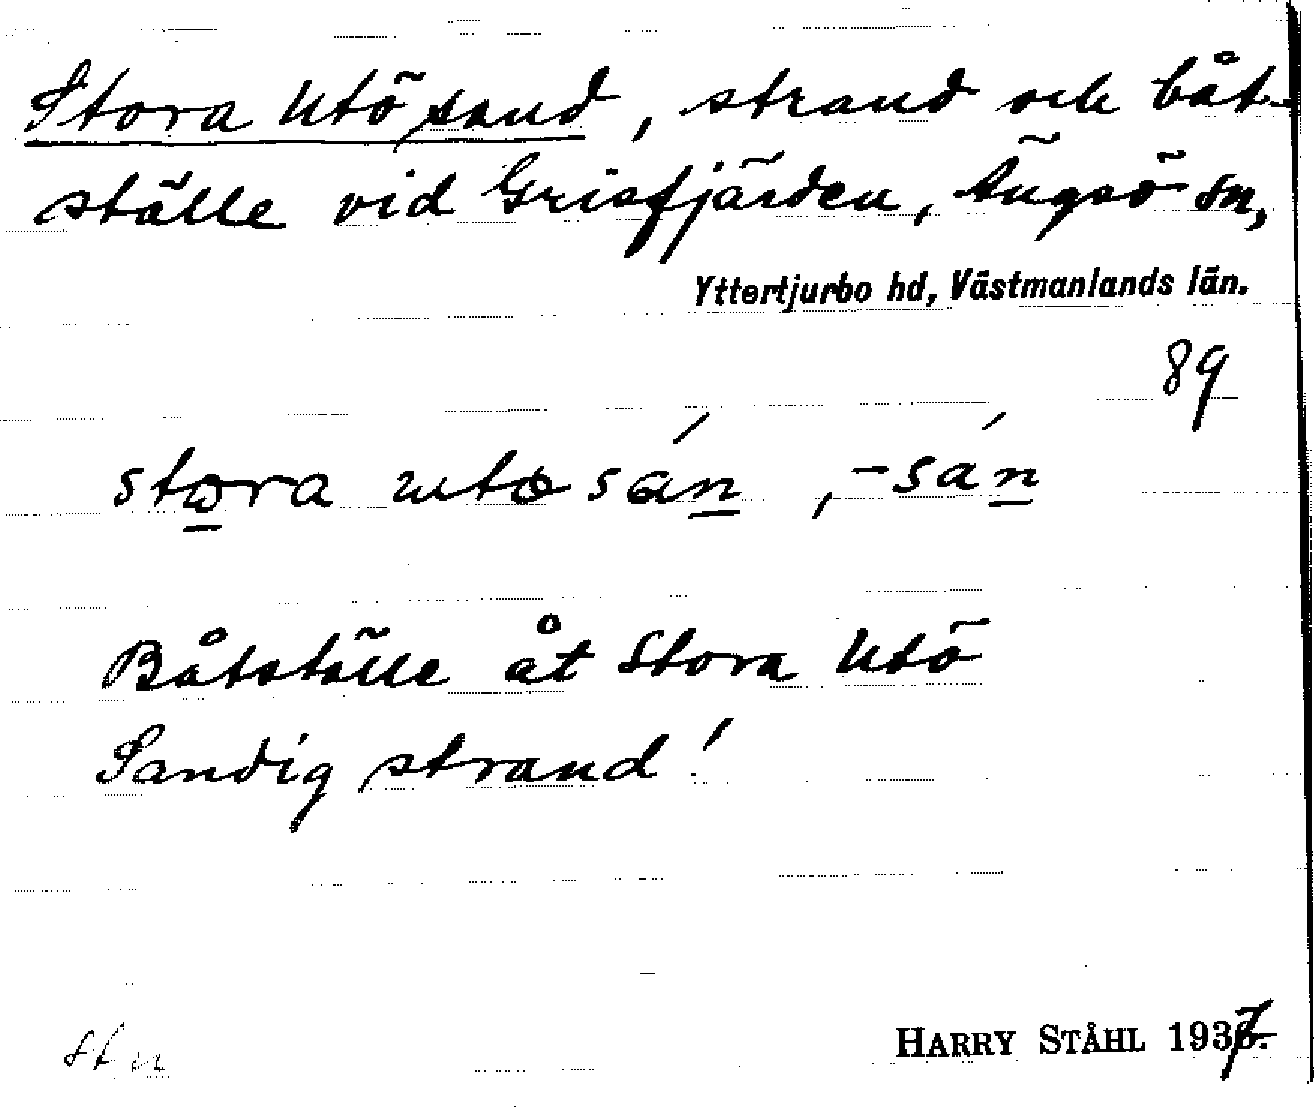 Stora Utösand, strand och båt-
ställe vid Grisfjärden, Ängsö sn,
Yttertjurbo hd, Västmanlands län.
89
sto̲ra utø sán̲, -sán̲
Båtställe åt Stora Utö
Sandig strand!
HARRY STÅHL 1937